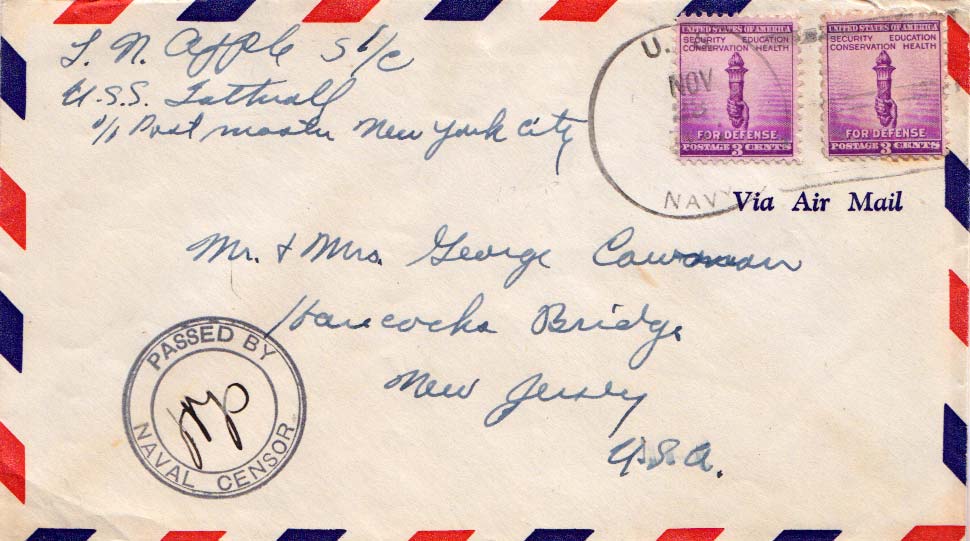 L. N. Apple S 1/c
U.S.S. Tattnall
c/o Post master New York City
UNITED STATES OF AMERICA
SECURITY EDUCATION
CONSERVATION HEALTH
FOR DEFENSE
POSTAGE 3 CENTS
UNITED STATES OF AMERICA
SECURITY EDUCATION
CONSERVATION HEALTH
FOR DEFENSE
POSTAGE 3 CENTS
U.
NOV
NAVY
Via Air Mail
Mr. & Mrs. George
Hancocks Bridge
New Jersey
U.S.A.
PASSED BY
NAVAL CENSOR